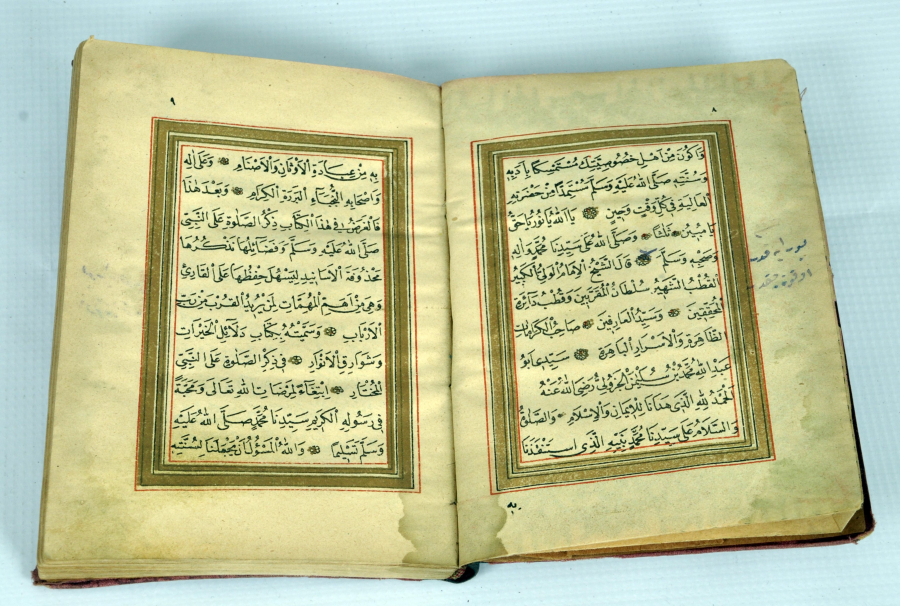 ٨
وَاكُونَ مِنْ اَهْلِ خُصُوصِيَّتِكَ مُسْتَمْسِكًا بِاَدَبِهِ
وَسُنَّتِهِ صَلَّى اللهُ عَلَيْهِ وَسَلَّمَ مُسْتَمِدًّا مِنْ حَضْرَتِهِ
الْعَالِيَةِ فِي كُلِّ وَقْتٍ وَحِينٍ يَا اَللهُ يَا نُورُ يَا حَقُّ
يَا مُبِينُ ثَلَاثًا وَصَلَّى اللهُ عَلَى سَيِّدِنَا مُحَمَّدٍ وَاٰلِهِ
وَصَحْبِهِ وَسَلَّمَ قَالَ الشَّيْخُ الْاِمَامُ الْوَلِيُّ الْكَبِيرُ
اَلْقُطْبُ الشَّهِيرُ سُلْطَانُ الْمُقَرَّبِينَ وَقُطْبُ دَائِرَةِ
الْمُحَقِّقِينَ وَسَيِّدُ الْعَارِفِينَ صَاحِبُ الْكَرَامَاتِ
الظَّاهِرَةِ وَالْاَسْرَارِ الْبَاهِرَةِ سَيِّدِي اَبُو
عَبْدِ اللهِ مُحَمَّدُ بْنُ سُلَيْمٰنَ الْجَزُولِيُّ رَضِيَ اللهُ عَنْهُ
اَلْحَمْدُ لِلّٰهِ الَّذِي هَدَانَا لِلْاِيمَانِ وَالْاِسْلَامِ وَالصَّلٰوةُ
وَالسَّلَامُ عَلَى سَيِّدِنَا مُحَمَّدٍ نَبِيِّهِ الَّذِي اسْتَنْقَذَنَا
بِهِ
٩
بِهِ مِنْ عِبَادَةِ الْاَوْثَانِ وَالْاَصْنَامِ وَعَلَى اٰلِهِ
وَاَصْحَابِهِ النُّجَبَاءِ الْبَرَرَةِ الْكِرَامِ وَبَعْدَ هٰذَا
فَالْغَرَضُ فِي هٰذَا الْكِتَابِ ذِكْرُ الصَّلٰوةِ عَلَى النَّبِيِّ
صَلَّى اللهُ عَلَيْهِ وَسَلَّمَ وَفَضَائِلِهَا نَذْكُرُهَا
مَحْذُوفَةَ الْاَسَانِيدِ لِيَسْهُلَ حِفْظُهَا عَلَى الْقَارِئِ
وَهِيَ مِنْ اَهَمِّ الْمُهِمَّاتِ لِمَنْ يُرِيدُ الْقُرْبَ مِنْ رَبِّ
الْاَرْبَابِ وَسَمَّيْتُهُ بِكِتَابِ دَلَائِلِ الْخَيْرَاتِ
وَشَوَارِقِ الْاَنْوَارِ فِي ذِكْرِ الصَّلٰوةِ عَلَى النَّبِيِّ
الْمُخْتَارِ اِبْتِغَاءً لِمَرْضَاتِ اللهِ تَعَالٰى وَمَحَبَّةً
فِي رَسُولِهِ الْكَرِيمِ سَيِّدِنَا مُحَمَّدٍ صَلَّى اللهُ عَلَيْهِ
وَسَلَّمَ تَسْلِيمًا وَاللهُ الْمَسْؤُلُ اَنْ يَجْعَلَنَا لِسُنَّتِهِ